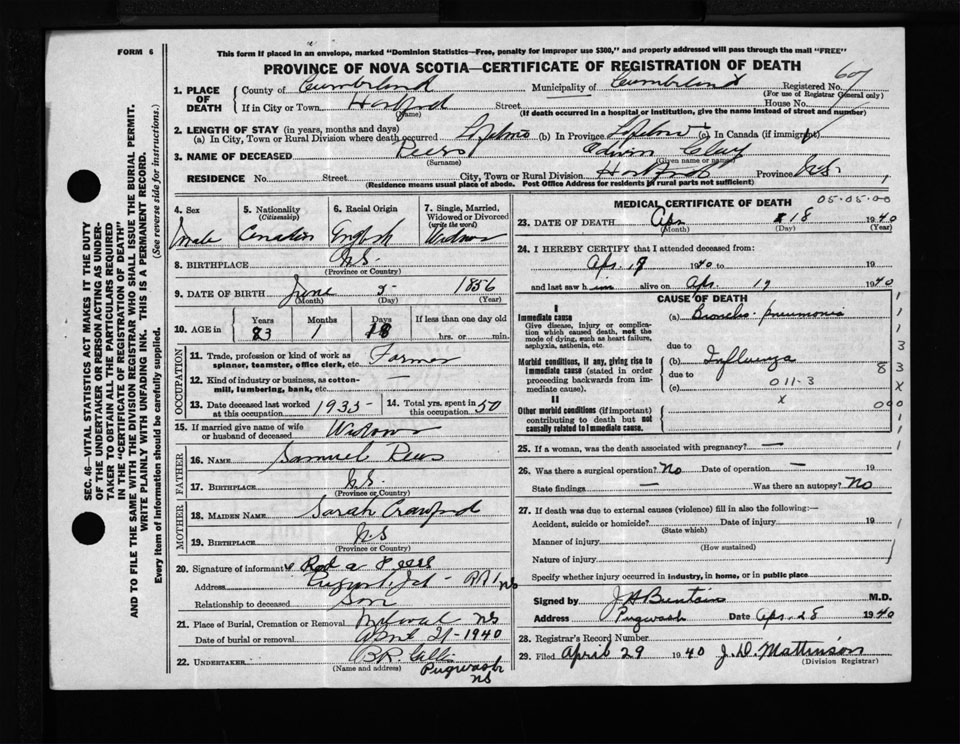 FORM 6
This form if placed in an envelope, marked "Dominion Statistics—Free, penalty for improper use $300," and properly addressed will pass through the mail "FREE"
PROVINCE OF NOVA SCOTIA—CERTIFICATE OF REGISTRATION OF DEATH
SEC. 46—VITAL STATISTICS ACT MAKES IT THE DUTY
OF THE UNDERTAKER OR PERSON ACTING AS UNDER-
TAKER TO OBTAIN ALL THE PARTICULARS REQUIRED
IN THE "CERTIFICATE OF REGISTRATION OF DEATH"
AND TO FILE THE SAME WITH THE DIVISION REGISTRAR WHO SHALL ISSUE THE BURIAL PERMIT.
WRITE PLAINLY WITH UNFADING INK. THIS IS A PERMANENT RECORD.
Every item of information should be carefully supplied. (See reverse side for instructions.)
1. PLACE OF DEATH
County of Cumberland Municipality of Cumberland Registered No. 607
(For use of Registrar General only)
If in City or Town Street House No.
(Name) (If death occurred in a hospital or institution, give the name instead of street and number)
2. LENGTH OF STAY (in years, months and days)
(a) In City, Town or Rural Division where death occurred Lifetime (b) In Province Lifetime (c) In Canada (if immigrant)
3. NAME OF DECEASED Edwin Clay
(Surname) (Given name or names)
RESIDENCE No. Street City, Town or Rural Division Province N.S.
(Residence means usual place of abode. Post Office Address for residents in rural parts not sufficient)
4. Sex
male
5. Nationality
(Citizenship)
Canadian
6. Racial Origin
English
7. Single, Married, Widowed or Divorced
(write the word)
Widower
8. BIRTHPLACE N.S.
(Province or Country)
9. DATE OF BIRTH June 5 1856
(Month) (Day) (Year)
10. AGE in Years Months Days If less than one day old
83 1 hrs. or min.
OCCUPATION
11. Trade, profession or kind of work as
spinner, teamster, office clerk, etc. Farmer
12. Kind of industry or business, as cotton-
mill, lumbering, bank, etc. —
13. Date deceased last worked
at this occupation 1935
14. Total yrs. spent in
this occupation 50
15. If married give name of wife
or husband of deceased Widower
FATHER
16. NAME Samuel
17. BIRTHPLACE N.S.
(Province or Country)
MOTHER
18. MAIDEN NAME Sarah Crawford
19. BIRTHPLACE N.S
(Province or Country)
20. Signature of informant
Address RR1 NS
Relationship to deceased Son
21. Place of Burial, Cremation or Removal NS
Date of burial or removal April 21-1940
22. UNDERTAKER
(Name and address) Pugwash NS
MEDICAL CERTIFICATE OF DEATH 05-05-00
23. DATE OF DEATH Apr 18 1940
(Month) (Day) (Year)
24. I HEREBY CERTIFY that I attended deceased from:
Apr. 1940 to 19
and last saw him alive on Apr. 17 1940
CAUSE OF DEATH
I
Immediate cause
Give disease, injury or complica-
tion which caused death, not the
mode of dying, such as heart failure,
asphyxia, asthenia, etc.
(a) Broncho-Pneumonia
due to
Morbid conditions, if any, giving rise to
immediate cause (stated in order
proceeding backwards from im-
mediate cause).
(b) Influenza
due to
(c) 011-3
x
II
Other morbid conditions (if important)
contributing to death but not
causally related to immediate cause.
25. If a woman, was the death associated with pregnancy? —
26. Was there a surgical operation? No Date of operation — 19
State findings — Was there an autopsy? No
27. If death was due to external causes (violence) fill in also the following:—
Accident, suicide or homicide? Date of injury 19
(State which)
Manner of injury
(How sustained)
Nature of injury
Specify whether injury occurred in industry, in home, or in public place
Signed by M.D.
Address Pugwash Date Apr. 28 1940
28. Registrar's Record Number
29. Filed April 29 1940 J. D. Mattinson
(Division Registrar)